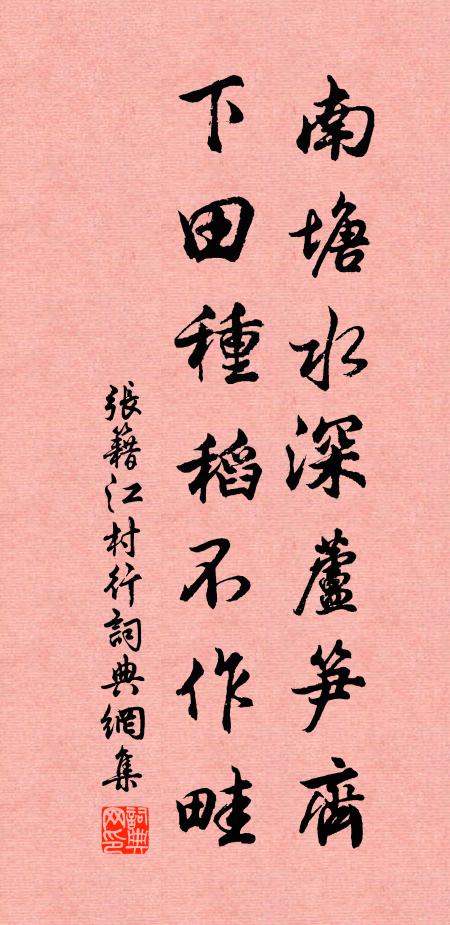 南塘水深蘆笋齊
下田種稻不作畦
張籍江村行詞典網集
詞典网印